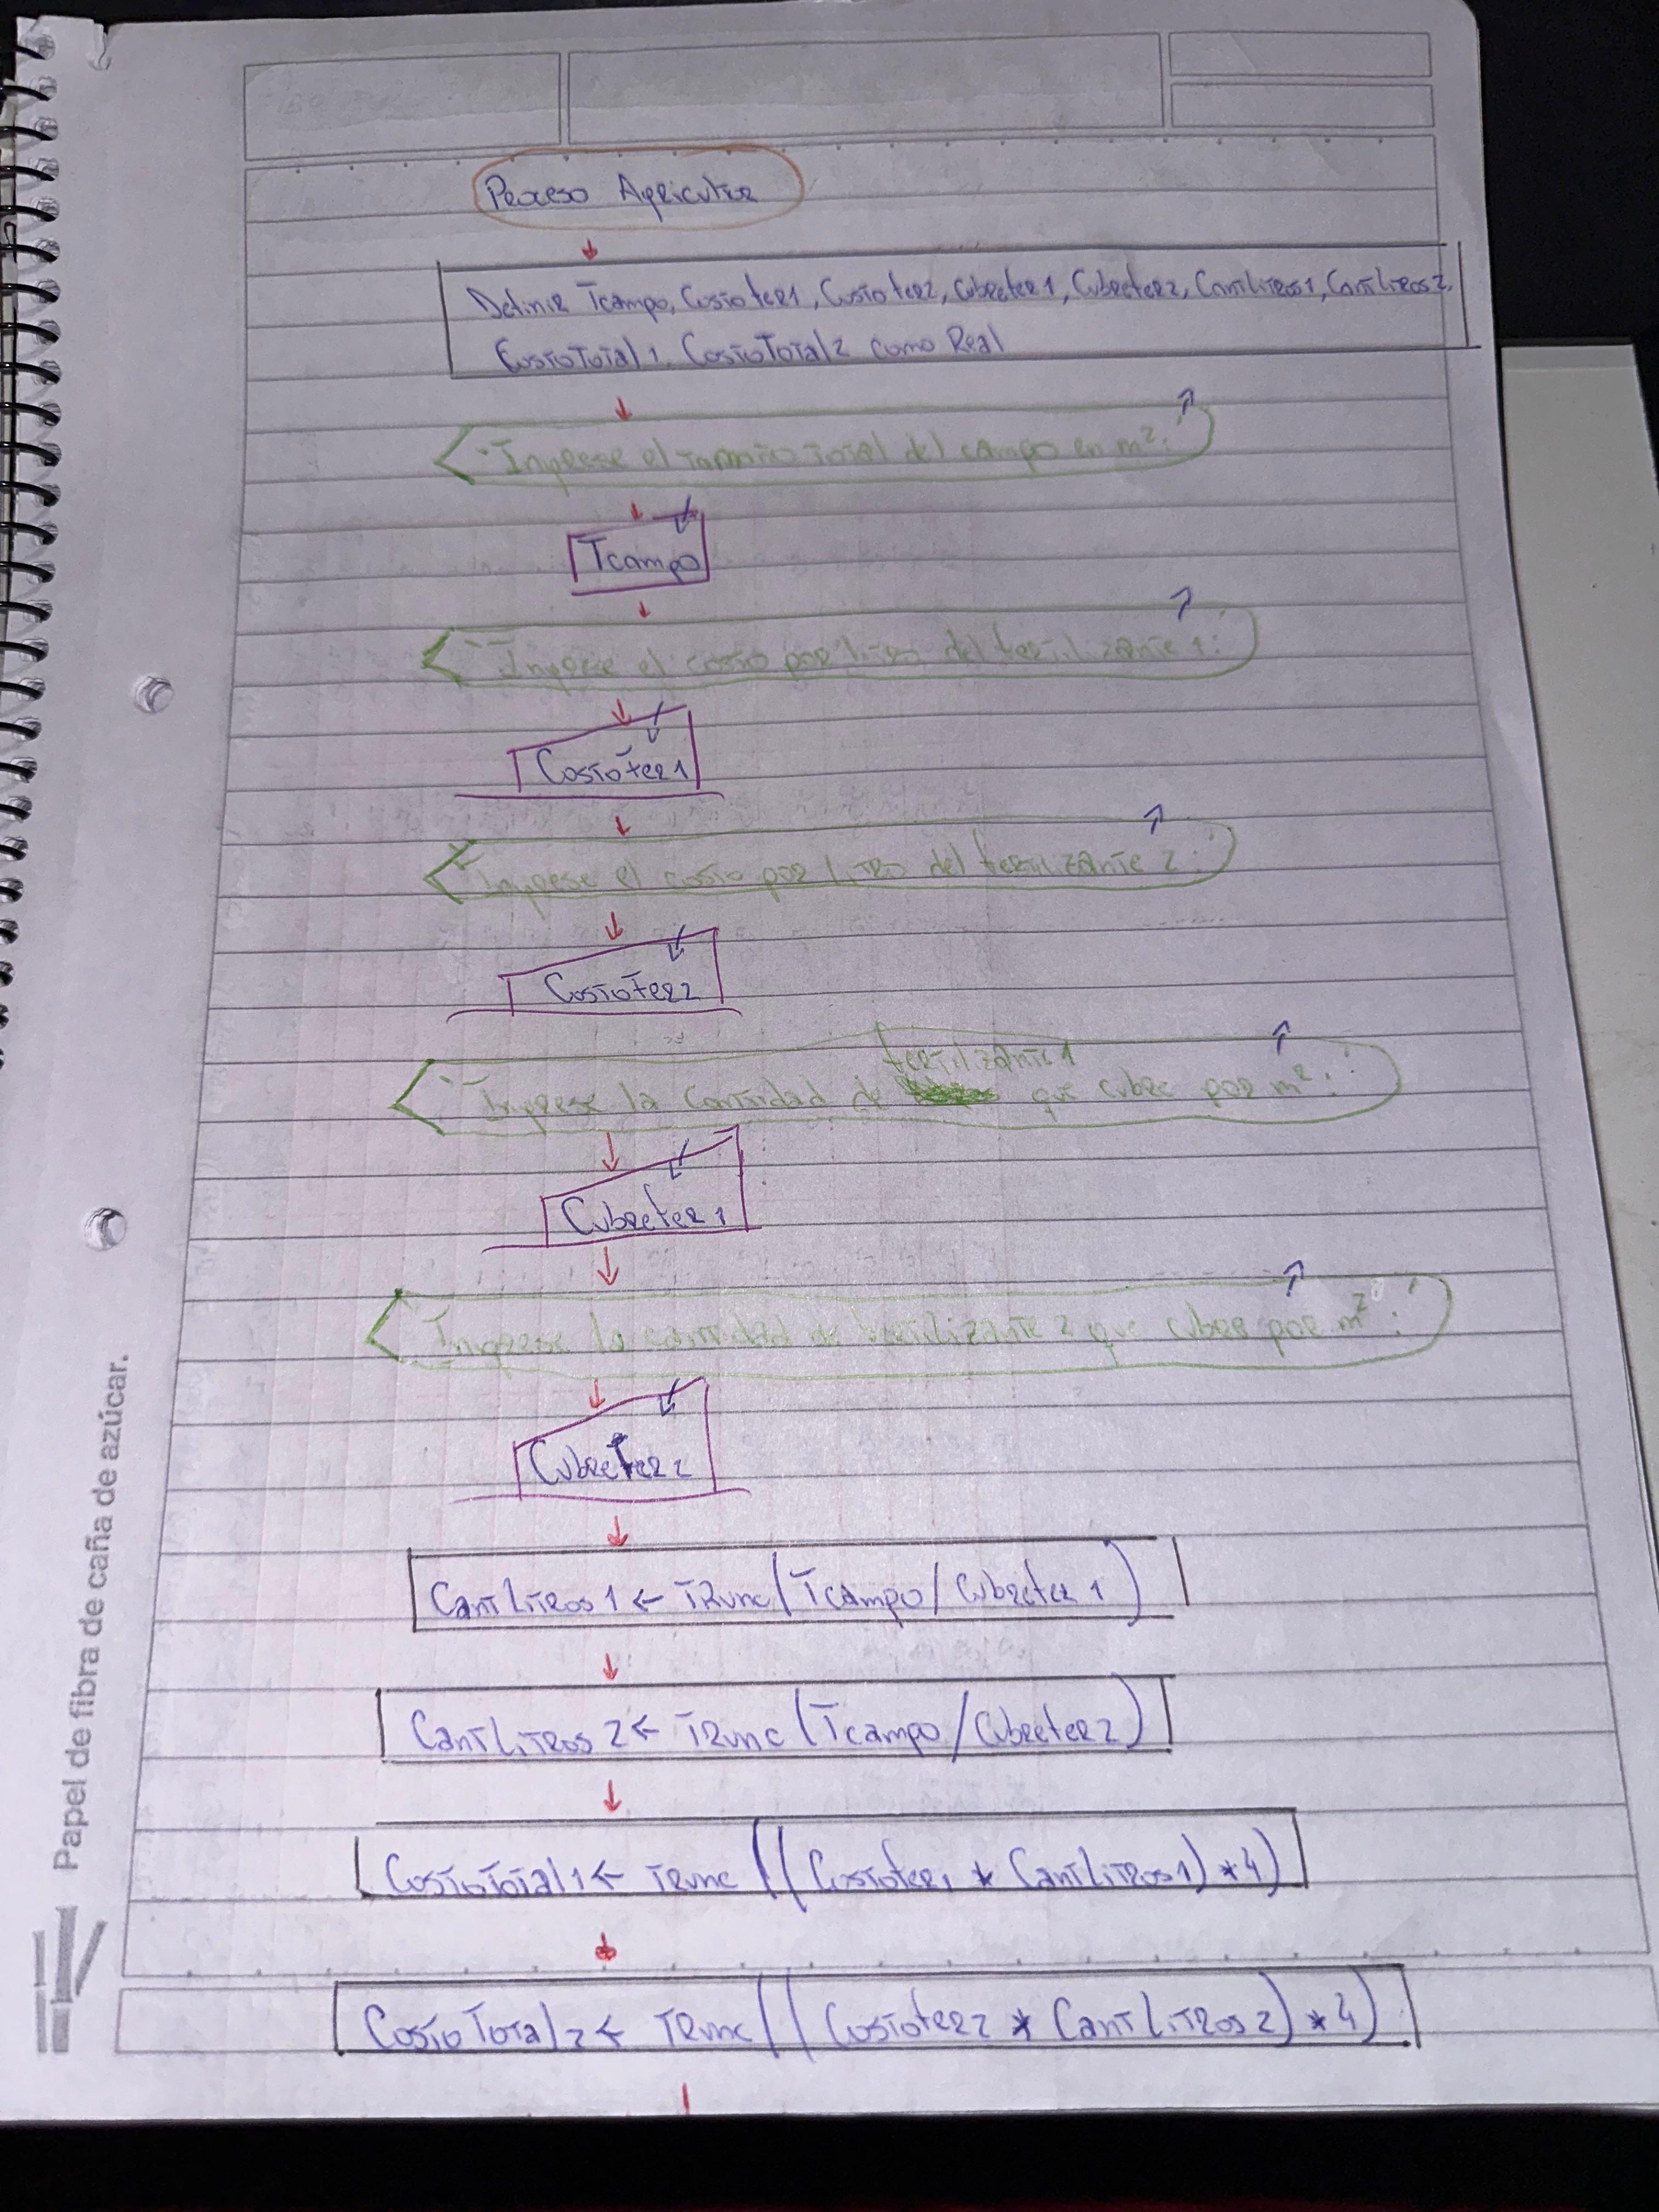 Proceso Agricultor
Definir Tcampo, CostoFer1, CostoFer2, CubreFer1, CubreFer2, CantLitros1, CantLitros2,
CostoTotal1, CostoTotal2 como Real
"Ingrese el tamaño total del campo en m²:"
Tcampo
"Ingrese el costo por litro del fertilizante 1:"
CostoFer1
"Ingrese el costo por litro del fertilizante 2:"
CostoFer2
"Ingrese la cantidad de fertilizante 1 que cubre por m²:"
CubreFer1
"Ingrese la cantidad de fertilizante 2 que cubre por m²:"
CubreFer2
CantLitros1 ← Trunc(Tcampo/CubreFer1)
CantLitros2 ← Trunc(Tcampo/CubreFer2)
CostoTotal1 ← Trunc((CostoFer1 * CantLitros1) * 4)
CostoTotal2 ← Trunc((CostoFer2 * CantLitros2) * 4)
Papel de fibra de caña de azúcar.